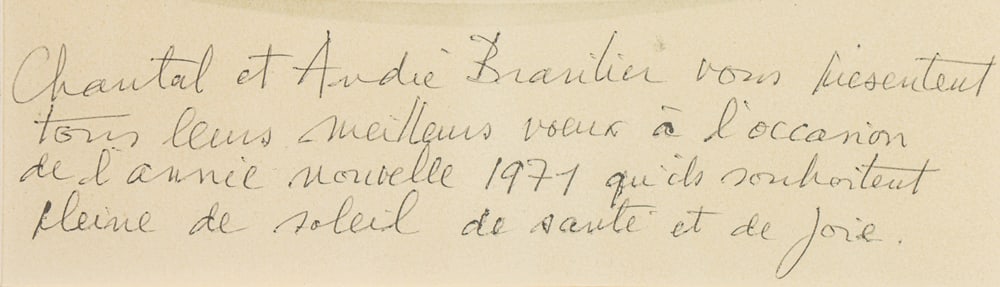 Chantal et André Brasilier vous présentent
tous leurs meilleurs voeux à l'occasion
de l'année nouvelle 1971 qu'ils souhaitent
pleine de soleil de santé et de joie.